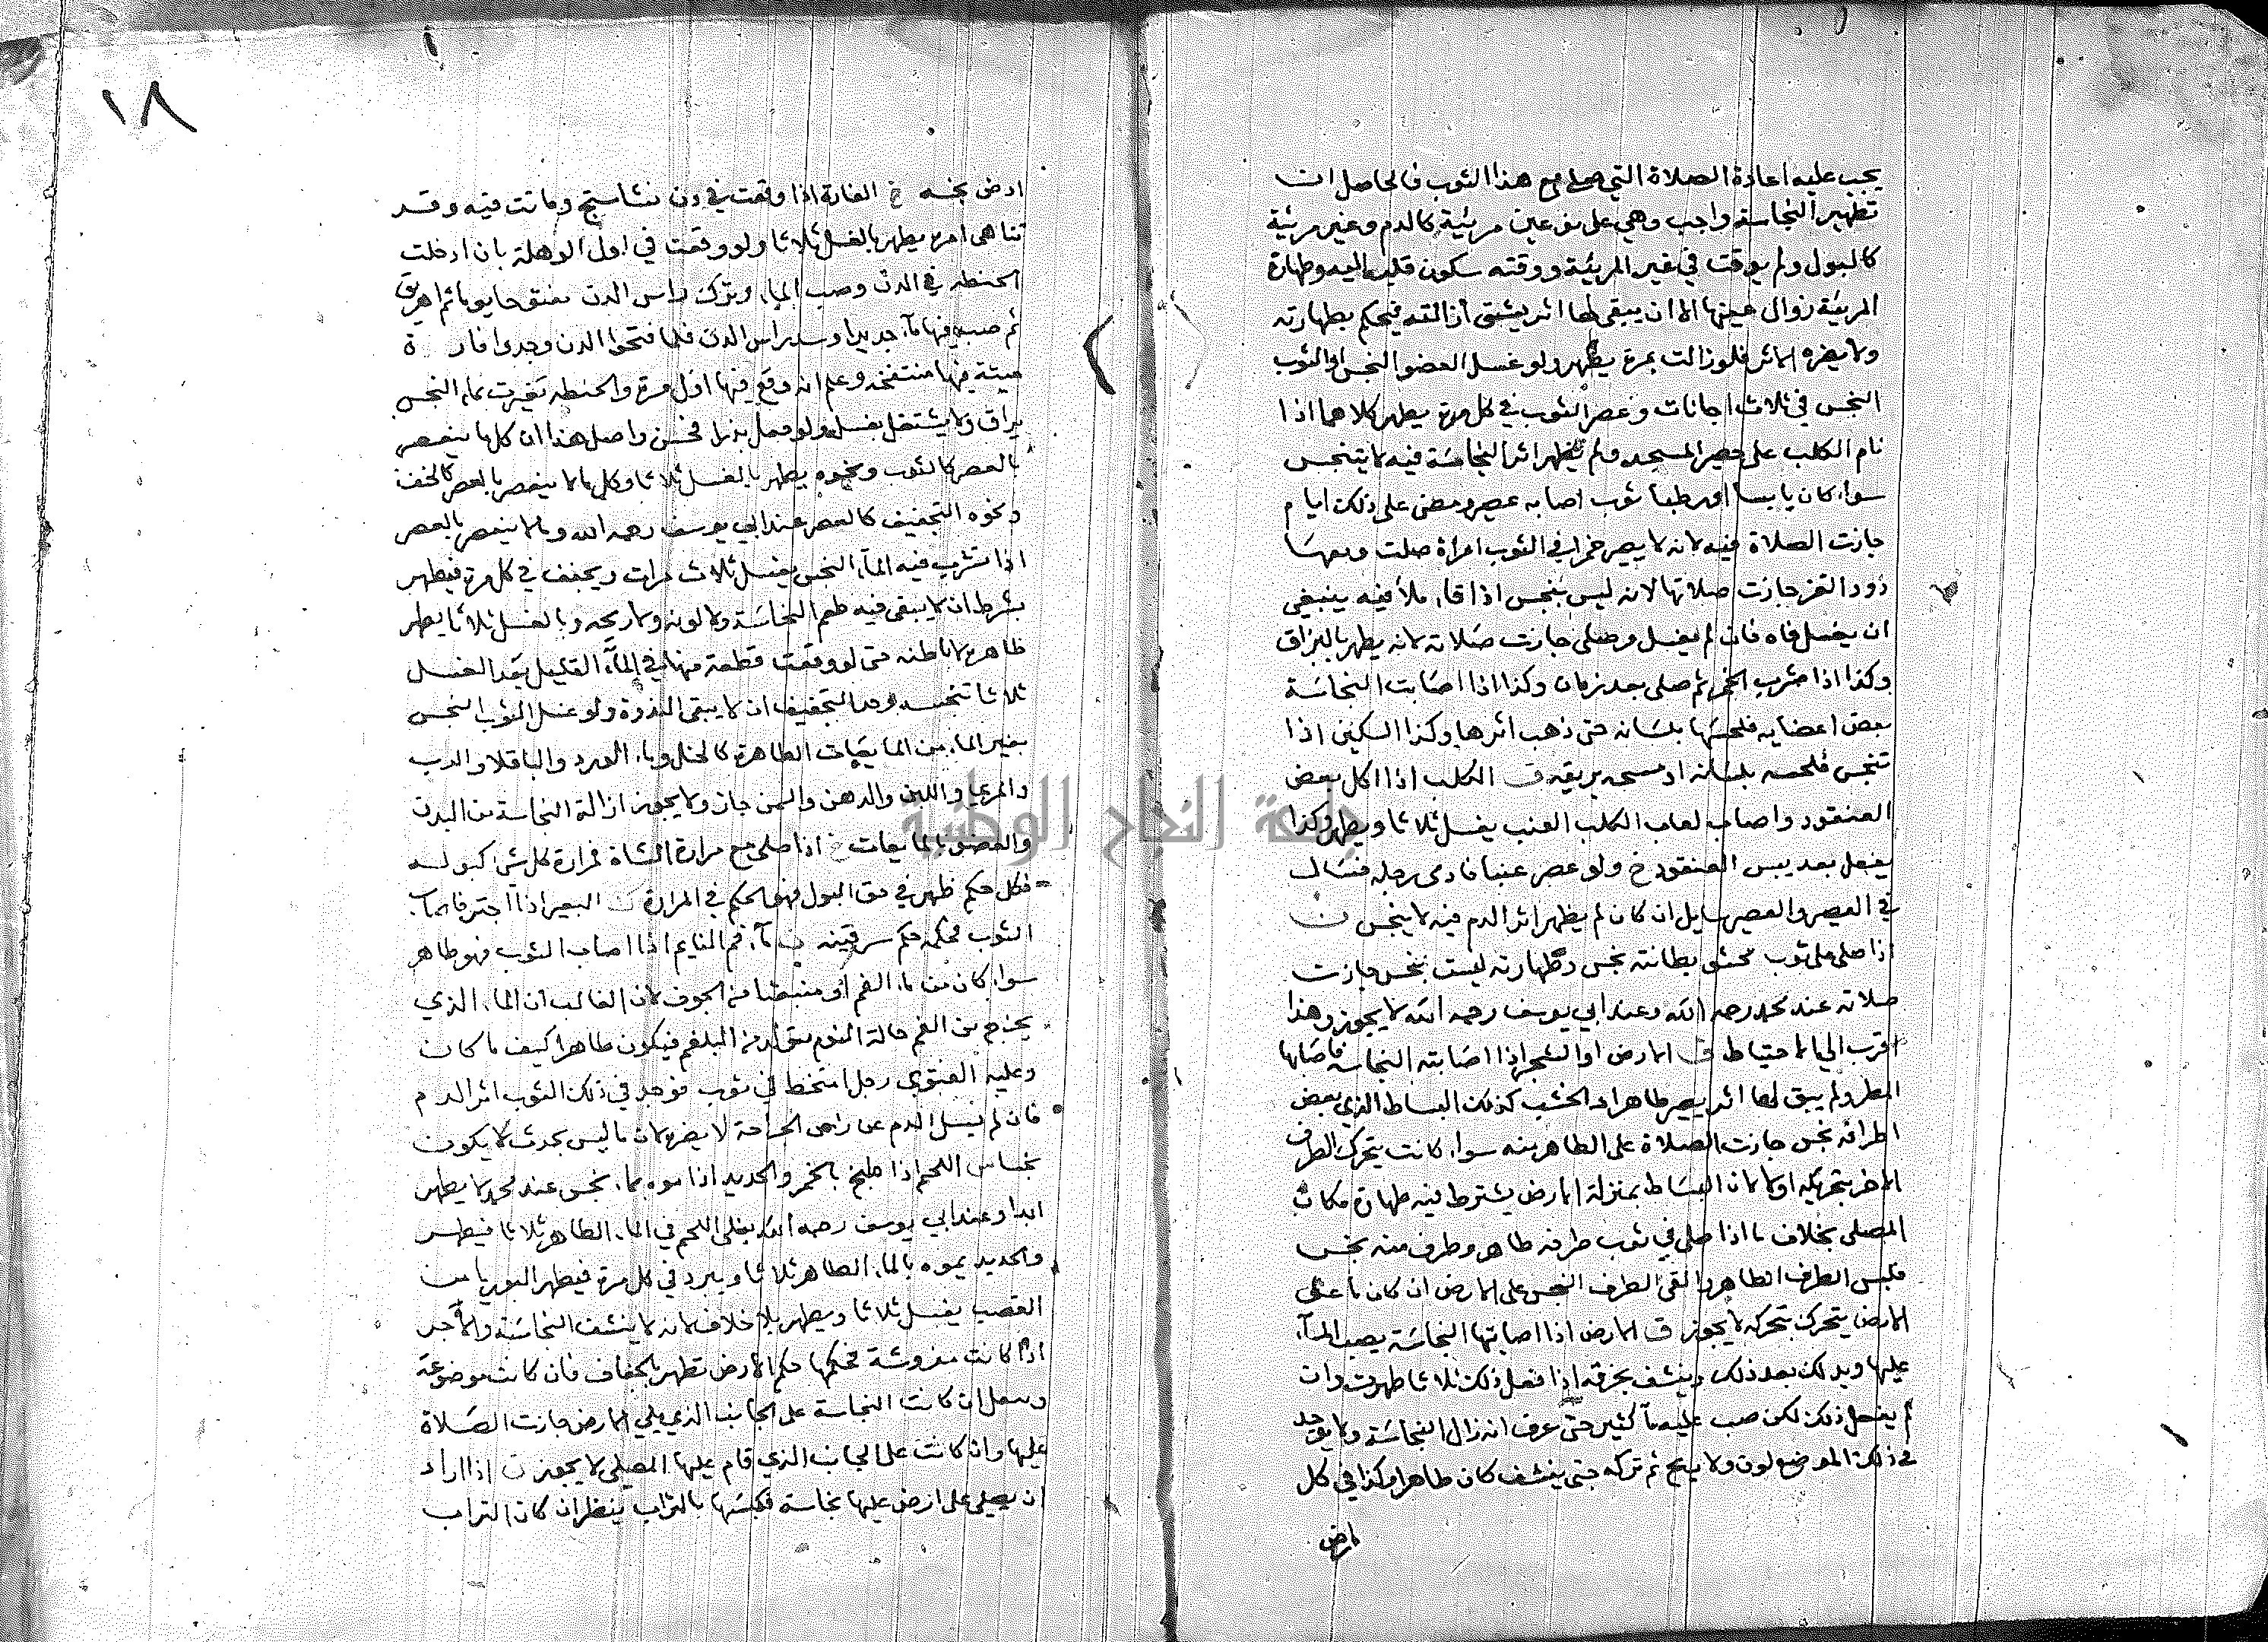 يجب عليه اعادة الصلاة التي صلى مع هذا الثوب فالحاصل ان
تطهير النجاسة واجب وهي على نوعين مرئية كالدم وغير مرئية
كالبول ولم يوقت في غير المرئية ووقته سكون قلبه اليه وطهارة
المرئية زوال عينها الا ان يبقى لها اثر يشق ازالته فيحكم بطهارته
ولا يضره الاثر فلو زالت بمرة يطهر ولو غسل العضو النجس او الثوب
النجس في ثلاث اجانات وعصر الثوب في كل مرة يطهر كلاهما اذا
نام الكلب على حصير المسجد ولم يظهر اثر النجاسة فيه لا يتنجس
سواء كان يابسا او رطبا ثوب اصابه عصير ومضى على ذلك ايام
جازت الصلاة فيه لانه لا يصير خمرا في الثوب امراة صلت ومعها
دود القز جازت صلاتها لانه ليس بنجس اذا قاء ملأ فيه ينبغي
ان يغسل فاه فان لم يغسل وصلى جازت صلاته لانه يطهر بالبزاق
وكذا اذا شرب الخمر ثم صلى بعد زمان وكذا اذا اصابت النجاسة
بعض اعضايه فلحسها بلسانه حتى ذهب اثرها وكذا السكين اذا
تنجس فلحسه بلسانه او مسحه بريقه ف الكلب اذا اكل بعض
العنقود واصاب لعاب الكلب العنب يغسل ثلاثا ويطهر وكذا
يفعل بعد يبس العنقود خ ولو عصر عنبا فادمى رجله فسال
في العصير والعصير سايل ان كان لم يظهر اثر الدم فيه لا ينجس ن
اذا صلى على ثوب محشو بطانته نجس وظهارته ليست بنجس جازت
صلاته عند محمد رحمه الله وعند ابي يوسف رحمه الله لا يجوز وهذا
اقرب الى الاحتياط ف الارض او الشجر اذا اصابته النجاسة فاصابها
المطر ولم يبق لها اثر يصير طاهرا والخشب كذلك البساط الذي بعض
اطرافه نجس جازت الصلاة على الطاهر منه سواء كانت يتحرك الطرف
الاخر بتحريكه او لا لان البساط بمنزلة الارض يشترط فيه طهارة مكان
المصلى بخلاف ما اذا صلى في ثوب طرفه طاهر وطرف منه نجس
فلبس الطرف الطاهر والقى الطرف النجس على الارض ان كان ما على
الارض يتحرك بتحركه لا يجوز ف الارض اذا اصابتها النجاسة يصب الماء
عليها ويدلك بعد ذلك وينشف بخرقة اذا فعل ذلك ثلاثا طهرت وان
لم يفعل ذلك لكن صب عليه ماء كثير حتى عرف انه زال النجاسة ولا يوجد
في ذلك الموضع لون ولا ريح ثم تركه حتى ينشف كان طاهرا وكذا في كل
ارض
١٨
ارض نجسة خ الفارة اذا وقعت في دن نشاستج وماتت فيه وقد
تناهى امره يطهر بالغسل ثلاثا ولو وقعت في اول الوهلة بان ادخلت
الحنطة في الدن وصب الماء وترك راس الدن ثم اهريق
ثم صب فيها ماء جديدا وسد براس الدن فلما فتحوا الدن وجدوا فارة
ميتة فيها منتفخة وعلم انه وقع فيها اول مرة والحنطة تغيرت بماء النجس
يراق ولا يشتغل بغسله ولو فعل بذا فحسن واصل هذا ان كل ما ينعصر
بالعصر كالثوب ونحوه يطهر بالغسل ثلاثا وكل ما لا ينعصر بالعصر كالخف
ونحوه التجفيف كالعصر عند ابي يوسف رحمه الله وما لا ينعصر بالعصر
اذا تشرب فيه الماء النجس يغسل ثلاث مرات ويجفف في كل مرة فيطهر
بشرط ان لا يبقى فيه طعم النجاسة ولا لونه ولا ريحه وبالغسل ثلاثا يطهر
ظاهره لا باطنه حتى لو وقعت قطعة منها في الماء القليل بعد الغسل
ثلاثا تنجسه وحد التجفيف ان لا يبقى النذوة ولو غسل الثوب النجس
بغير الماء من المايعات الطاهرة كالخل وماء الورد والباقلا والدب
والمري واللبن والدهن والسمن جاز ولا يجوز ازالة النجاسة من البدن
والعضو بالمايعات خ اذا صلى مع مرارة الشاة فمرارة كل شي كبوله
فكل حكم ظهر في حق البول فهو الحكم في المرارة ن البعير اذا اجتر فاصاب
الثوب فحكمه حكم سرقينه ن ماء فم النايم اذا اصاب الثوب فهو طاهر
سواء كان من ماء الفم او منبعثا من الجوف لان الغالب ان الماء الذي
يخرج من الفم حالة النوم يتولد من البلغم فيكون طاهرا كيف ما كان
وعليه الفتوى رجل امتخط في ثوب فوجد في ذلك الثوب اثر الدم
فان لم يسل الدم عن راس الجراحة لا يضره لان ما ليس بحدث لا يكون
نجسا س اللحم اذا طبخ بالخمر والحديد اذا موه بماء نجس عند محمد لا يطهر
ابدا وعند ابي يوسف رحمه الله يغلى اللحم في الماء الطاهر ثلاثا فيطهر
والحديد يموه بالماء الطاهر ثلاثا ويبرد في كل مرة فيطهر البوريا من
القصب يغسل ثلاثا ويطهر بلا خلاف لانه لا ينشف النجاسة والآجر
اذا كانت مفروشة فحكمها حكم الارض تطهر بالجفاف فان كانت موضوعة
ان كانت النجاسة على الجانب الذي يلي الارض جازت الصلاة
عليها وان كانت على الجانب الذي قام عليها المصلي لا يجوز ن اذا اراد
ان يصلي على ارض عليها نجاسة فكبسها بالتراب ينظر ان كان التراب
جامعة النجاح الوطنية